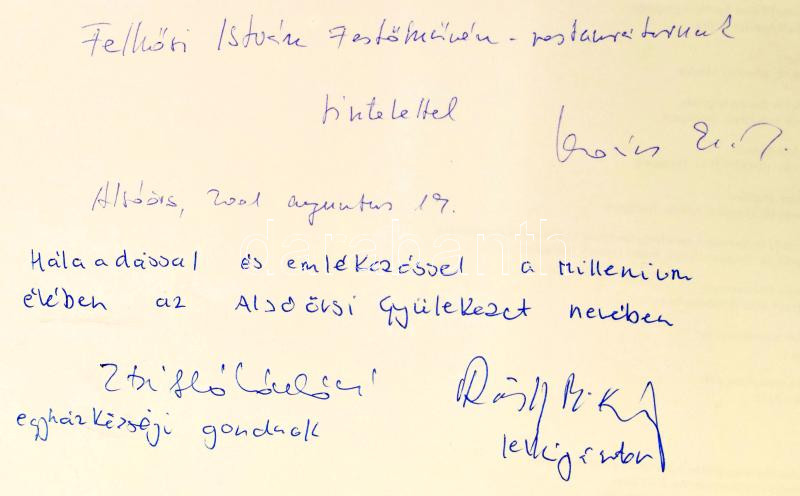 Felhősi István Festőművész - restaurátornak
tisztelettel
Kovács E. J.
Alsóörs, 2001 augusztus 19.
Hálaadással és emlékezéssel a Millenium
évében az Alsóörsi Gyülekezet nevében
László
egyházközségi gondnok
lelkipásztor